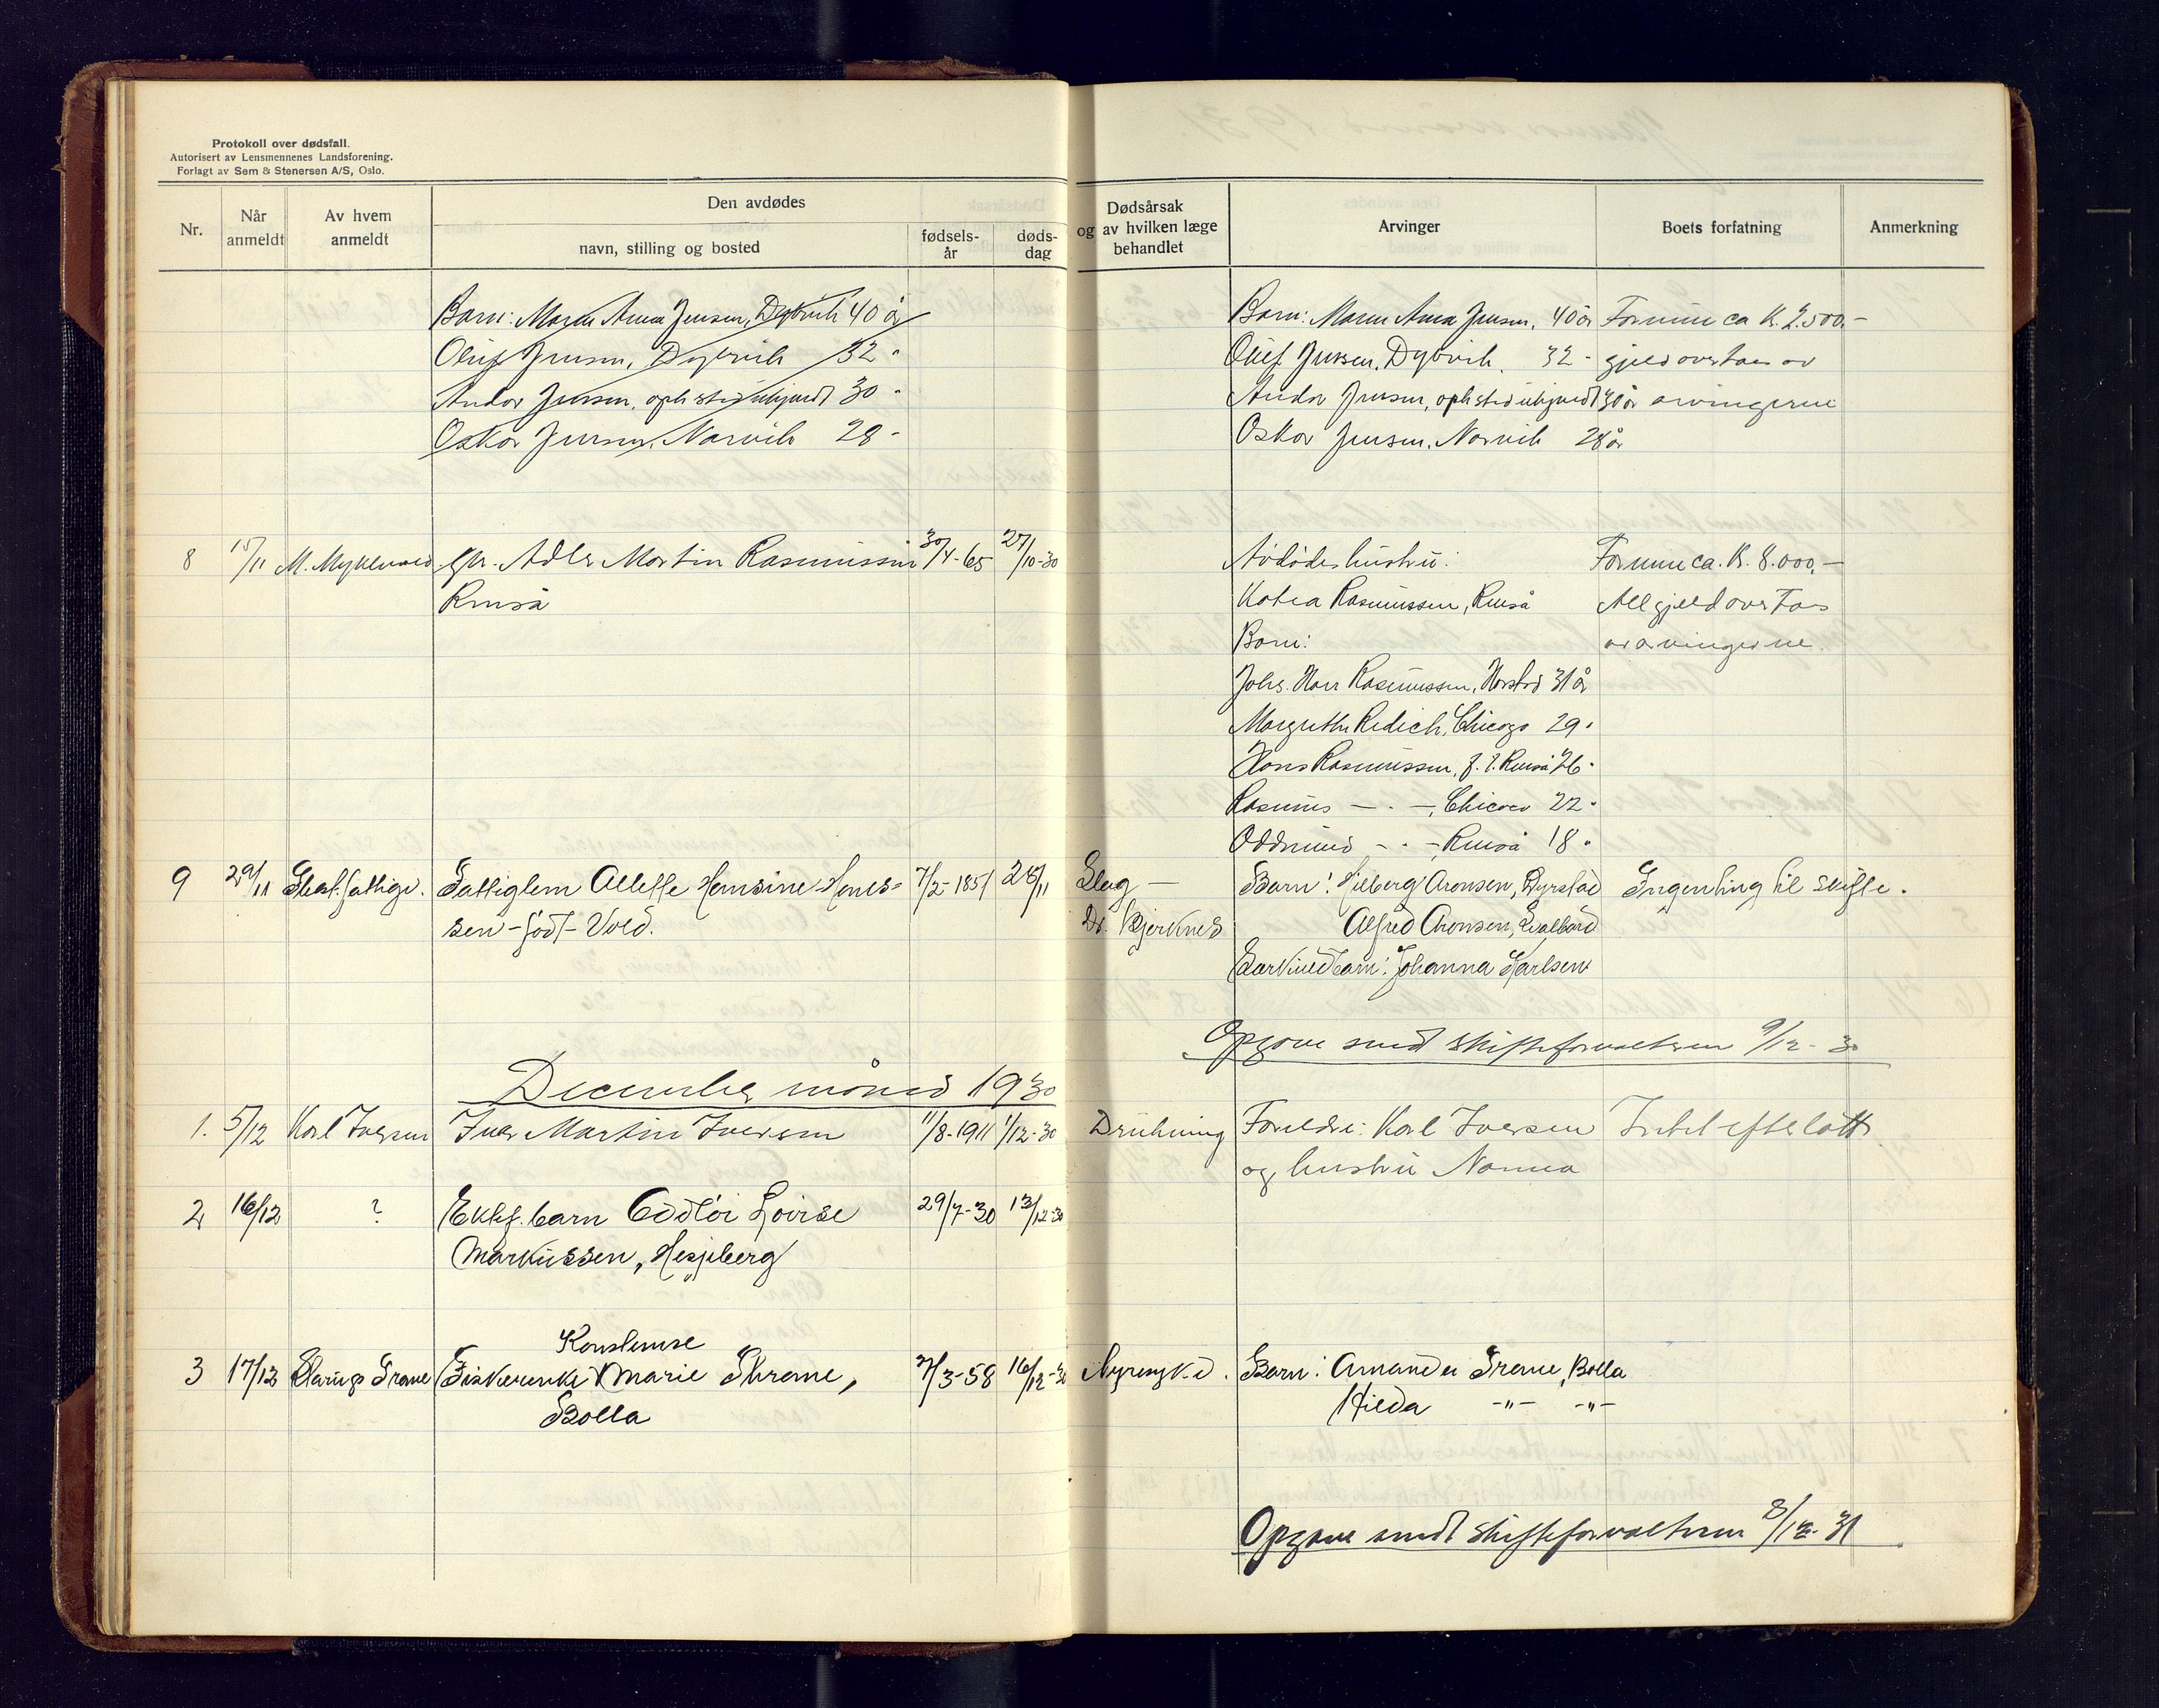 Protokoll over dødsfall.
Autorisert av Lensmennenes Landsforening.
Forlagt av Sem & Stenersen A/S, Oslo.
Nr.
Når anmeldt
Av hvem anmeldt
Den avdødes
navn, stilling og bosted
fødsels-år
døds-dag
Dødsårsak og av hvilken læge behandlet
Arvinger
Boets forfatning
Anmerkning
Barn: Maren Anna Jensen, Dybvik 40 år
Oluf Jensen, Dybvik 32 -
Andor Jensen, opholdsted ukjendt 30 -
Oskar Jensen, Narvik 28 -
Barn: Maren Anna Jensen, 40 år Formue ca kr. 2.500.-
Oluf Jensen, Dybvik 32 - gjeld overtaes av
Andor Jensen, ukjendt 30 år arvingerne
Oskar Jensen, Narvik 28 år
8 15/11 M. Myklevold Adler Martin Rasmussen 30/4-65 27/10-30
Renså
Avdødes hustru: Formue ca. kr. 8.000,-
Rasmussen, Renså All gjeld overtas
Barn: av arvingerne.
Johs. Rasmussen, Harstad 31 år
Margrethe Redich, Chicago 29 -
Hans Rasmussen, f. t. Renså 26 -
Rasmus - " -, Chicago 22 -
Oddmund - " -, Renså 18 -
9 29/11 fattigv. Fattiglem Allette Hansine Hans-
sen - født Vold. 7/2-1851 28/11
Slag - Barn: Hilberg Aronsen, Dyrstad Ingenting til skifte.
Dr. Bjerknes Alfred Aronsen,
Barn: Johanna Karlsen
Opgave sendt skifteforvalteren 9/12-30
December måned 1930
1. 5/12 Karl Iversen Iver Martin Iversen 11/8-1911 1/12-30 Drukning Foreldre: Karl Iversen Intet efterlatt.
og hustru Nanna
2 16/12 ? Ektef. barn Oddlöi Lovise 29/7-30 13/12-30
Markussen, Hesjeberg
Konstense
3 17/12 Grane Fiskerenke Marie Thrane, 7/3-58 16/12-30 Nyresykd. Barn: Amanda Trane, Bolla
Bolla Hilda -"- -"-
Opgave sendt skifteforvalteren 8/12-31